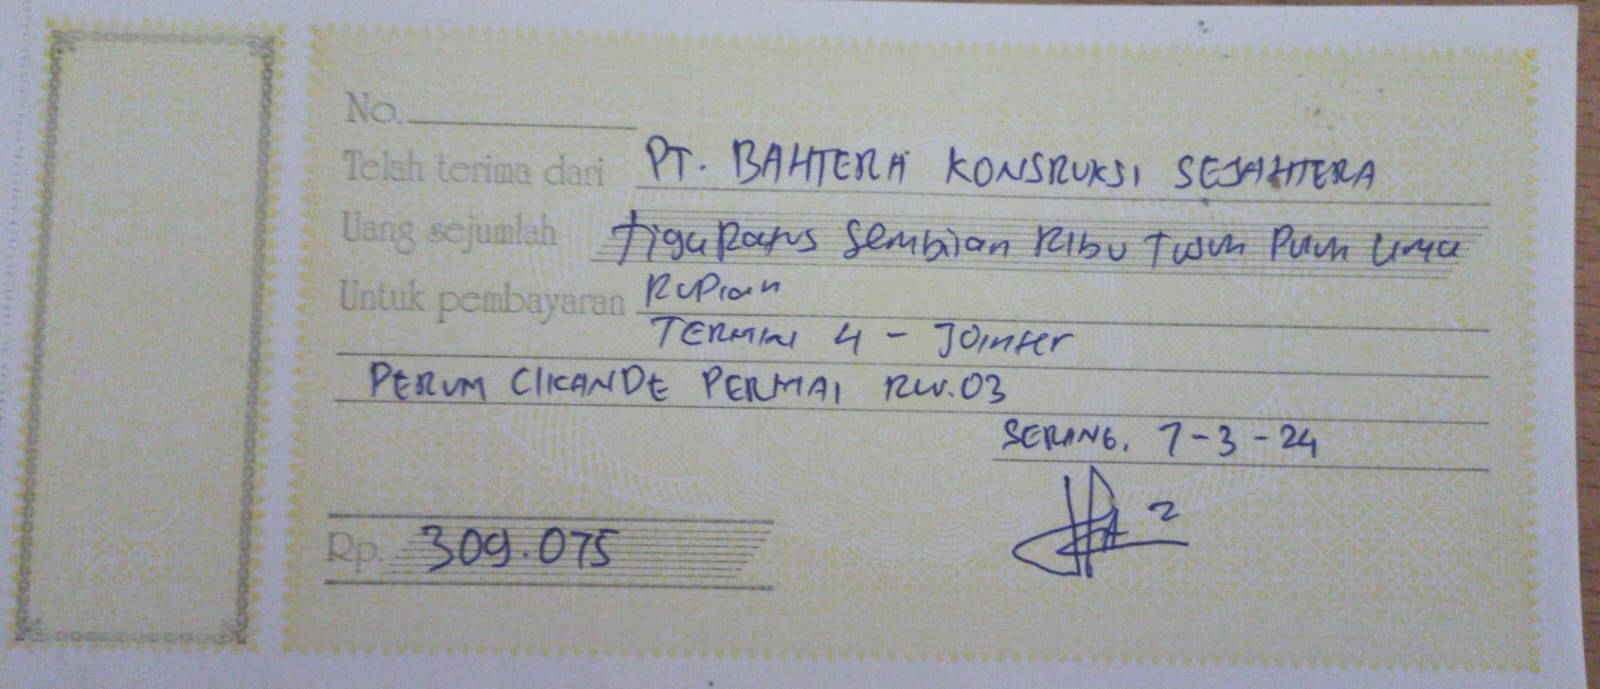 No.
Telah terima dari PT. BAHTERA KONSRUKSI SEJAHTERA
Uang sejumlah tiga Ratus Sembilan Ribu Tujuh Puluh Lima
Untuk pembayaran Rupiah
TERMIN 4 - JOINTER
PERUM CIKANDE PERMAI RW.03
SERANG, 7-3-24
Rp. 309.075